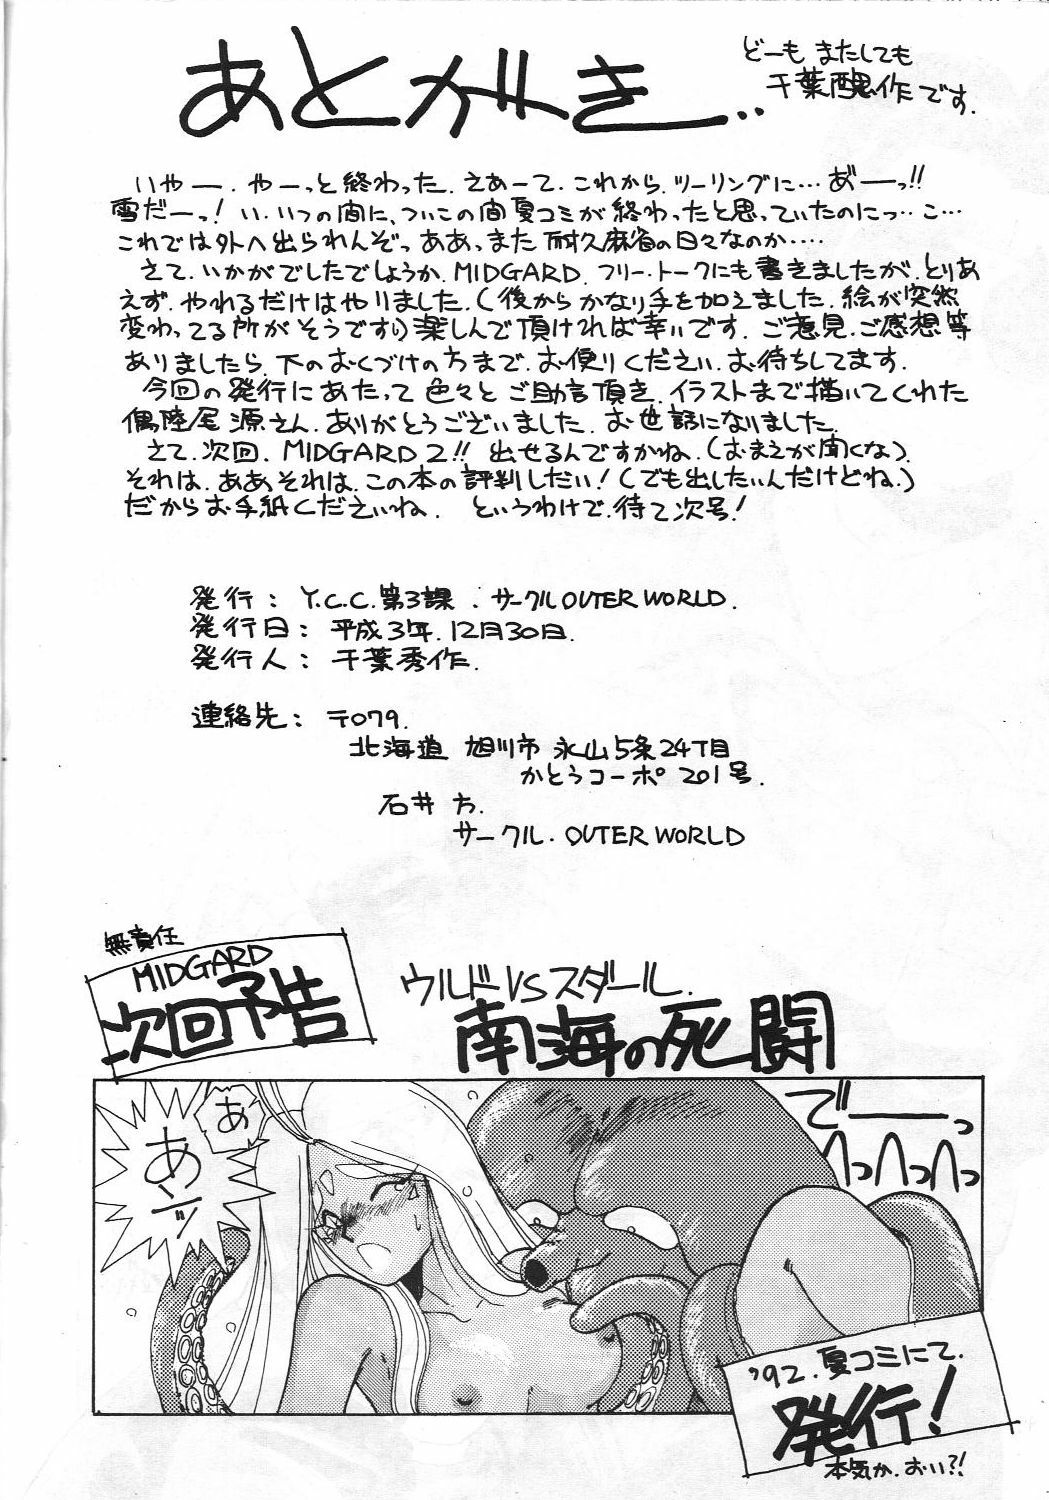 あとがき..
どーも またしても
千葉醜作です.
いやー. やーっと終わった. さあーて. これから. ツーリングに… あ゛ーっ!!
雪だーっ! い. いつの間に、ついこの間夏コミが終わったと思っていたのにっ‥ こ…
これでは外へ出られんぞっ ああ、また 耐久麻雀の日々なのか‥‥
さて. いかがでしたでしょうか. MIDGARD. フリー・トークにも書きましたが. とりあ
えず. やれるだけはやりました. (後からかなり手を加えました. 絵が突然
変わってる所がそうです。) 楽しんで頂ければ幸いです. ご意見. ご感想等
ありましたら. 下のおくづけの方まで. お便りください. お待ちしてます.
今回の発行にあたって色々とご助言頂き. イラストまで描いてくれた
偶陸尾 源さん. ありがとうございました. お世話になりました.
さて. 次回. MIDGARD 2!! 出せるんですかね. (おまえが聞くな).
それは. ああそれは. この本の評判しだい! (でも出したいんだけどね.)
だからお手紙くださいね. というわけで. 待て次号!
発行 : Y.C.C. 第3課 . サークル OUTER WORLD.
発行日 : 平成3年. 12月30日.
発行人 : 千葉秀作.
連絡先 : 〒079.
北海道 旭川市 永山5条24丁目
かとうコーポ 201号.
石井 方.
サークル. OUTER WORLD
無責任
MIDGARD
次回予告
ウルドVSスダール.
南海の死闘
あ
あッ
でーーっ
へっへっへっ
'92. 夏コミにて.
発行!
本気か. おい?!